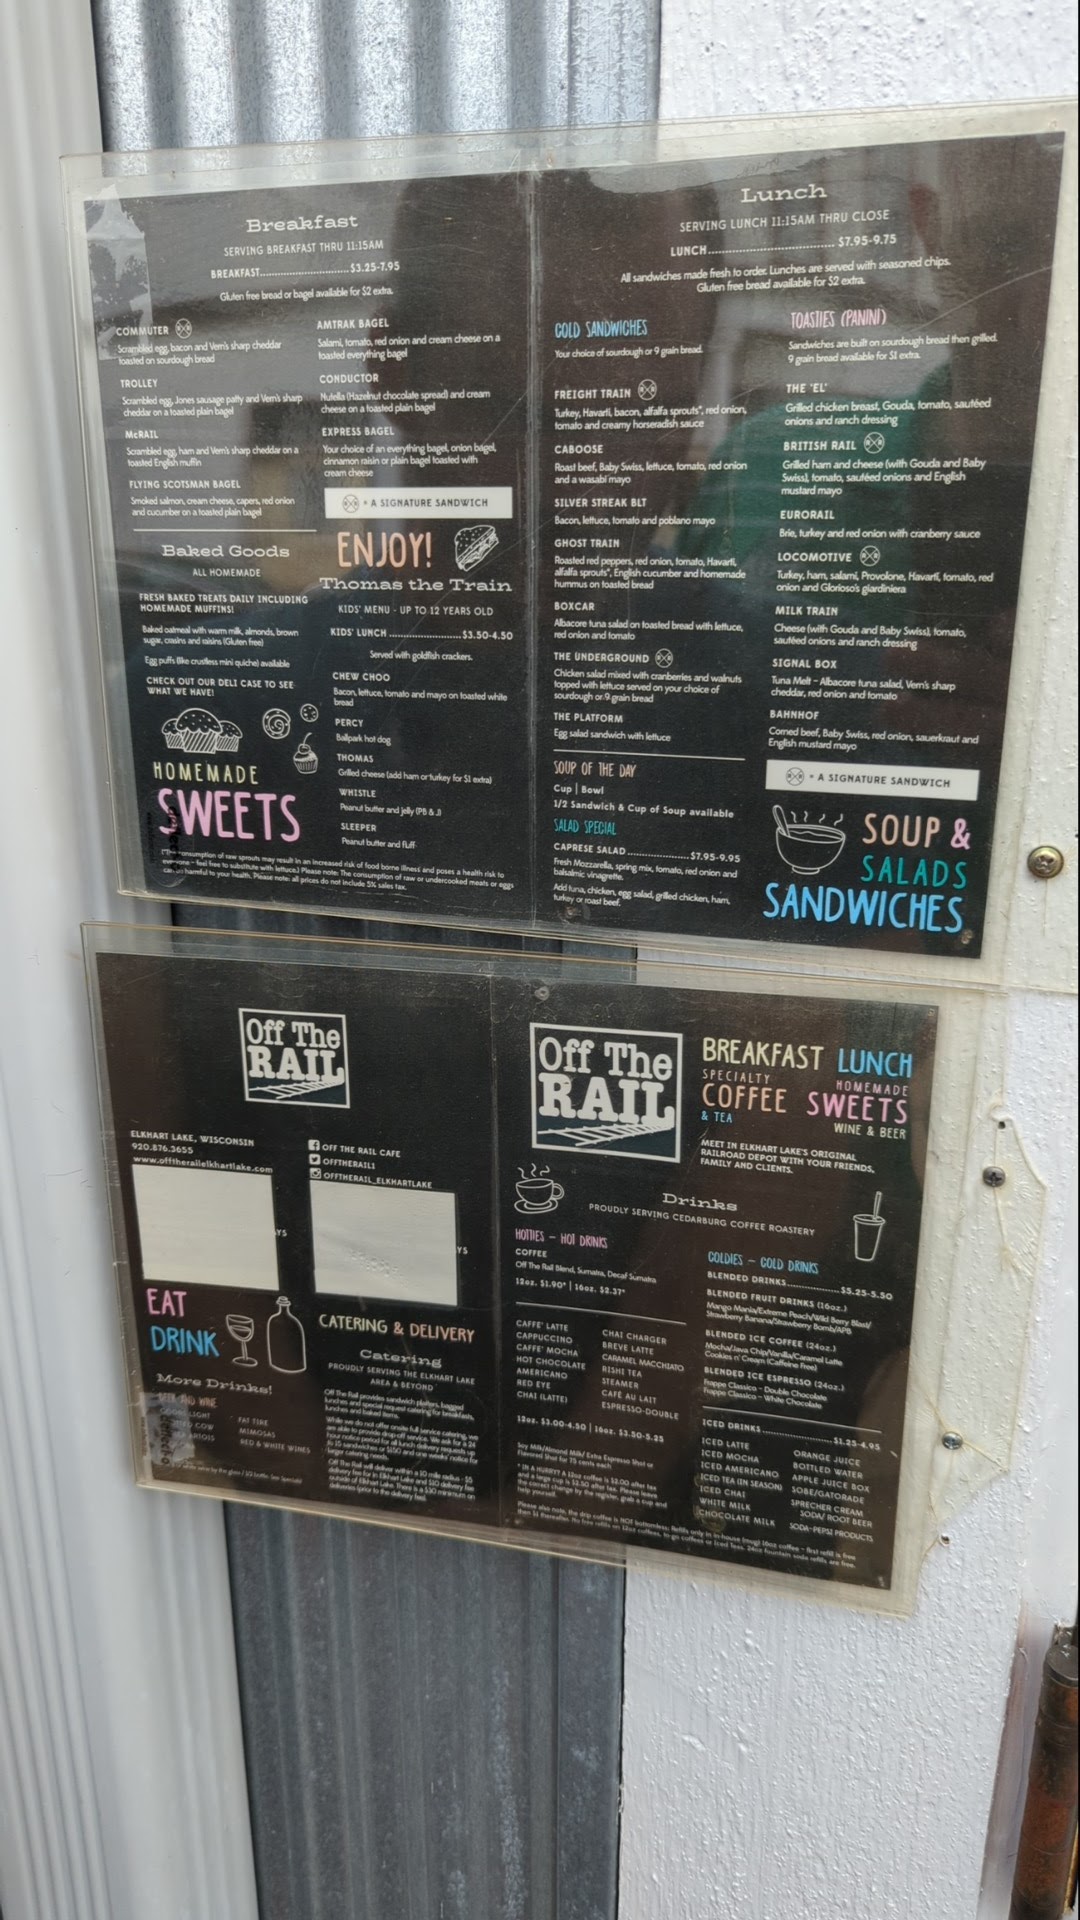 Breakfast
SERVING BREAKFAST THRU 11:15AM
BREAKFAST.............................$3.25-7.95
Gluten free bread or bagel available for $2 extra.
COMMUTER
Scrambled egg, bacon and Vern's sharp cheddar
toasted on sourdough bread
TROLLEY
Scrambled egg, Jones sausage patty and Vern's sharp
cheddar on a toasted plain bagel
McRAIL
Scrambled egg, ham and Vern's sharp cheddar on a
toasted English muffin
FLYING SCOTSMAN BAGEL
Smoked salmon, cream cheese, capers, red onion
and cucumber on a toasted plain bagel
AMTRAK BAGEL
Salami, tomato, red onion and cream cheese on a
toasted everything bagel
CONDUCTOR
Nutella (Hazelnut chocolate spread) and cream
cheese on a toasted plain bagel
EXPRESS BAGEL
Your choice of an everything bagel, onion bagel,
cinnamon raisin or plain bagel toasted with
cream cheese
= A SIGNATURE SANDWICH
Baked Goods
ALL HOMEMADE
FRESH BAKED TREATS DAILY INCLUDING
HOMEMADE MUFFINS!
Baked oatmeal with warm milk, almonds, brown
sugar, craisins and raisins (Gluten free)
Egg puffs (like crustless mini quiche) available
CHECK OUT OUR DELI CASE TO SEE
WHAT WE HAVE!
HOMEMADE
SWEETS
ENJOY!
Thomas the Train
KIDS' MENU - UP TO 12 YEARS OLD
KIDS' LUNCH.......................$3.50-4.50
Served with goldfish crackers.
CHEW CHOO
Bacon, lettuce, tomato and mayo on toasted white
bread
PERCY
Ballpark hot dog
THOMAS
Grilled cheese (add ham or turkey for $1 extra)
WHISTLE
Peanut butter and jelly (PB & J)
SLEEPER
Peanut butter and fluff
consumption of raw sprouts may result in an increased risk of food borne illness and poses a health risk to
everyone - feel free to substitute with lettuce.) Please note: The consumption of raw or undercooked meats or eggs
can be harmful to your health. Please note: all prices do not include 5% sales tax.
Lunch
SERVING LUNCH 11:15AM THRU CLOSE
LUNCH.................................$7.95-9.75
All sandwiches made fresh to order. Lunches are served with seasoned chips.
Gluten free bread available for $2 extra.
COLD SANDWICHES
Your choice of sourdough or 9 grain bread.
FREIGHT TRAIN
Turkey, Havarti, bacon, alfalfa sprouts*, red onion,
tomato and creamy horseradish sauce
CABOOSE
Roast beef, Baby Swiss, lettuce, tomato, red onion
and a wasabi mayo
SILVER STREAK BLT
Bacon, lettuce, tomato and poblano mayo
GHOST TRAIN
Roasted red peppers, red onion, tomato, Havarti,
alfalfa sprouts*, English cucumber and homemade
hummus on toasted bread
BOXCAR
Albacore tuna salad on toasted bread with lettuce,
red onion and tomato
THE UNDERGROUND
Chicken salad mixed with cranberries and walnuts
topped with lettuce served on your choice of
sourdough or 9 grain bread
THE PLATFORM
Egg salad sandwich with lettuce
SOUP OF THE DAY
Cup | Bowl
1/2 Sandwich & Cup of Soup available
SALAD SPECIAL
CAPRESE SALAD................$7.95-9.95
Fresh Mozzarella, spring mix, tomato, red onion and
balsamic vinagrette.
Add tuna, chicken, egg salad, grilled chicken, ham,
turkey or roast beef.
TOASTIES (PANINI)
Sandwiches are built on sourdough bread then grilled.
9 grain bread available for $1 extra.
THE 'EL'
Grilled chicken breast, Gouda, tomato, sautéed
onions and ranch dressing
BRITISH RAIL
Grilled ham and cheese (with Gouda and Baby
Swiss), tomato, sautéed onions and English
mustard mayo
EURORAIL
Brie, turkey and red onion with cranberry sauce
LOCOMOTIVE
Turkey, ham, salami, Provolone, Havarti, tomato, red
onion and Glorioso's giardiniera
MILK TRAIN
Cheese (with Gouda and Baby Swiss), tomato,
sautéed onions and ranch dressing
SIGNAL BOX
Tuna Melt - Albacore tuna salad, Vern's sharp
cheddar, red onion and tomato
BAHNHOF
Corned beef, Baby Swiss, red onion, sauerkraut and
English mustard mayo
= A SIGNATURE SANDWICH
SOUP &
SALADS
SANDWICHES
Off The
RAIL
ELKHART LAKE, WISCONSIN
920.876.3655
www.offtherailelkhartlake.com
OFF THE RAIL CAFE
OFFTHERAIL1
OFFTHERAIL_ELKHARTLAKE
YS
YS
EAT
DRINK
More Drinks!
BEER AND WINE
COORS LIGHT
SPOTTED COW
STELLA ARTOIS
FAT TIRE
MIMOSAS
RED & WHITE WINES
CATERING & DELIVERY
Catering
PROUDLY SERVING THE ELKHART LAKE
AREA & BEYOND
Off The Rail provides sandwich platters, bagged
lunches and special request catering for breakfasts,
lunches and baked items.
While we do not offer onsite full service catering, we
are able to provide drop-off service. We ask for a 24
hour notice period for all lunch delivery requests up
to 15 sandwiches or $150 and one weeks' notice for
larger catering needs.
Off The Rail will deliver within a 10 mile radius - $5
delivery fee for in Elkhart Lake and $10 delivery fee
outside of Elkhart Lake. There is a $30 minimum on
deliveries (prior to the delivery fee).
Off The
RAIL
BREAKFAST LUNCH
SPECIALTY HOMEMADE
COFFEE SWEETS
& TEA WINE & BEER
MEET IN ELKHART LAKE'S ORIGINAL
RAILROAD DEPOT WITH YOUR FRIENDS,
FAMILY AND CLIENTS.
Drinks
PROUDLY SERVING CEDARBURG COFFEE ROASTERY
HOTTIES - HOT DRINKS
COFFEE
Off The Rail Blend, Sumatra, Decaf Sumatra
12oz. $1.90* | 16oz. $2.37*
CAFFE' LATTE
CAPPUCCINO
CAFFE' MOCHA
HOT CHOCOLATE
AMERICANO
RED EYE
CHAI (LATTE)
CHAI CHARGER
BREVE LATTE
CARAMEL MACCHIATO
RISHI TEA
STEAMER
CAFÉ AU LAIT
ESPRESSO-DOUBLE
12oz. $3.00-4.50 | 16oz. $3.50-5.25
Soy Milk/Almond Milk/ Extra Espresso Shot or
Flavored Shot for 75 cents each
* IN A HURRY? A 12oz coffee is $2.00 after tax
and a large cup is $2.50 after tax. Please leave
the correct change by the register, grab a cup and
help yourself.
Please also note, the drip coffee is NOT bottomless: Refills only in in-house (mug) 16oz coffee - first refill is free
then $1 thereafter. No free refills on 12oz coffees, to-go coffees or Iced Teas. 24oz fountain soda refills are free.
COLDIES - COLD DRINKS
BLENDED DRINKS.................$5.25-5.50
BLENDED FRUIT DRINKS (16oz.)
Mango Mania/Extreme Peach/Wild Berry Blast/
Strawberry Banana/Strawberry Bomb/APB
BLENDED ICE COFFEE (24oz.)
Mocha/Java Chip/Vanilla/Caramel Latte
Cookies n' Cream (Caffeine Free)
BLENDED ICE ESPRESSO (24oz.)
Frappe Classico - Double Chocolate
Frappe Classico - White Chocolate
ICED DRINKS......................$1.25-4.95
ICED LATTE
ICED MOCHA
ICED AMERICANO
ICED TEA (IN SEASON)
ICED CHAI
WHITE MILK
CHOCOLATE MILK
ORANGE JUICE
BOTTLED WATER
APPLE JUICE BOX
SOBE/GATORADE
SPRECHER CREAM
SODA/ ROOT BEER
SODA-PEPSI PRODUCTS